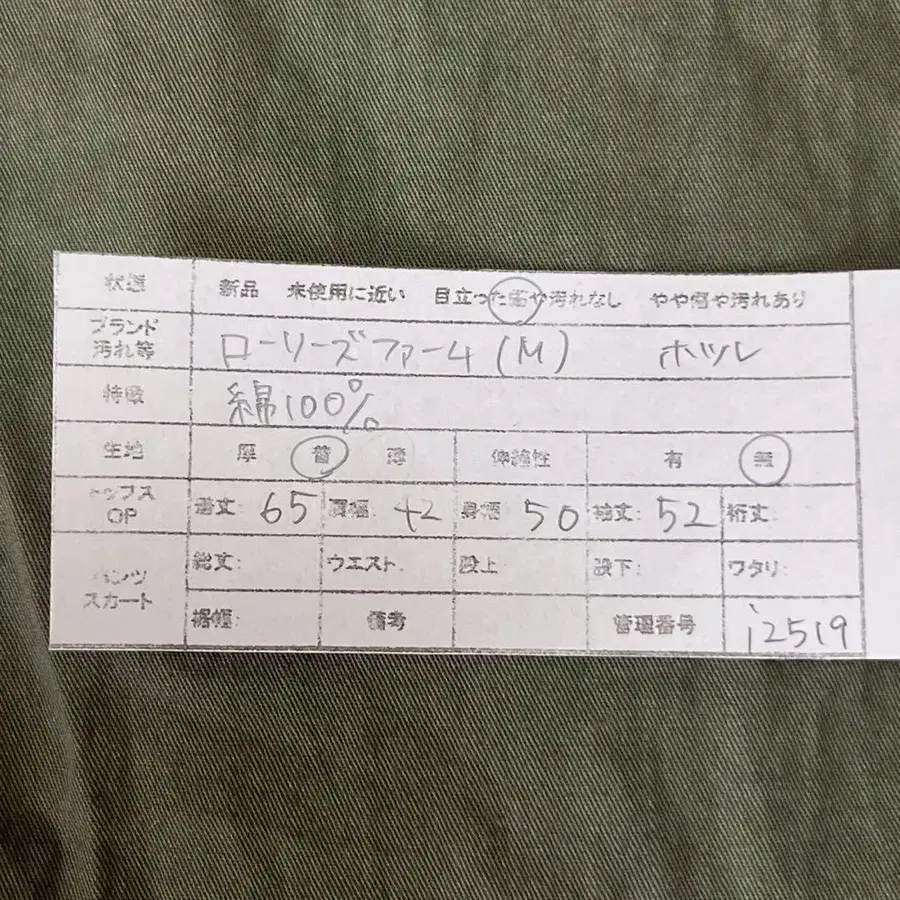 状態 新品 未使用に近い 目立った傷や汚れなし やや傷や汚れあり
ブランド
汚れ等 ローリーズファーム(M) ホツレ
特徴 綿100%
生地 厚 普 薄 伸縮性 有 無
トップス
OP 着丈: 65 肩幅: 42 身幅: 50 袖丈: 52 裄丈:
パンツ
スカート 総丈: ウエスト: 股上 股下: ワタリ:
裾幅: 備考 管理番号 i2519